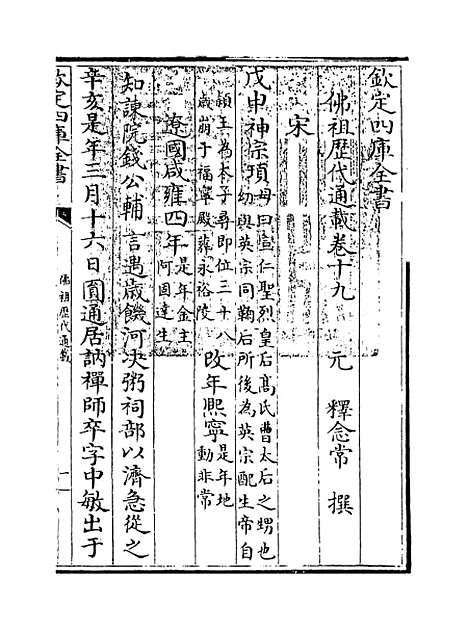 欽定四庫全書
佛祖歷代通載卷十九
元 釋念常 撰
宋
戊申神宗頊母曰宣仁聖烈皇后高氏曹太后之甥也
幼與英宗同鞠后所後為英宗配生帝自
頴王為太子尋即位三十八
歲崩于福寧殿葬永裕陵
改年熙寧是年地
動非常
遼國咸雍四年是年金主
阿固達生
知諫院錢公輔言遇歲饑河决粥祠部以濟急從之
辛亥是年三月十六日圓通居訥禪師卒字中敏出于
欽定四庫全書
佛祖歷代通載
一